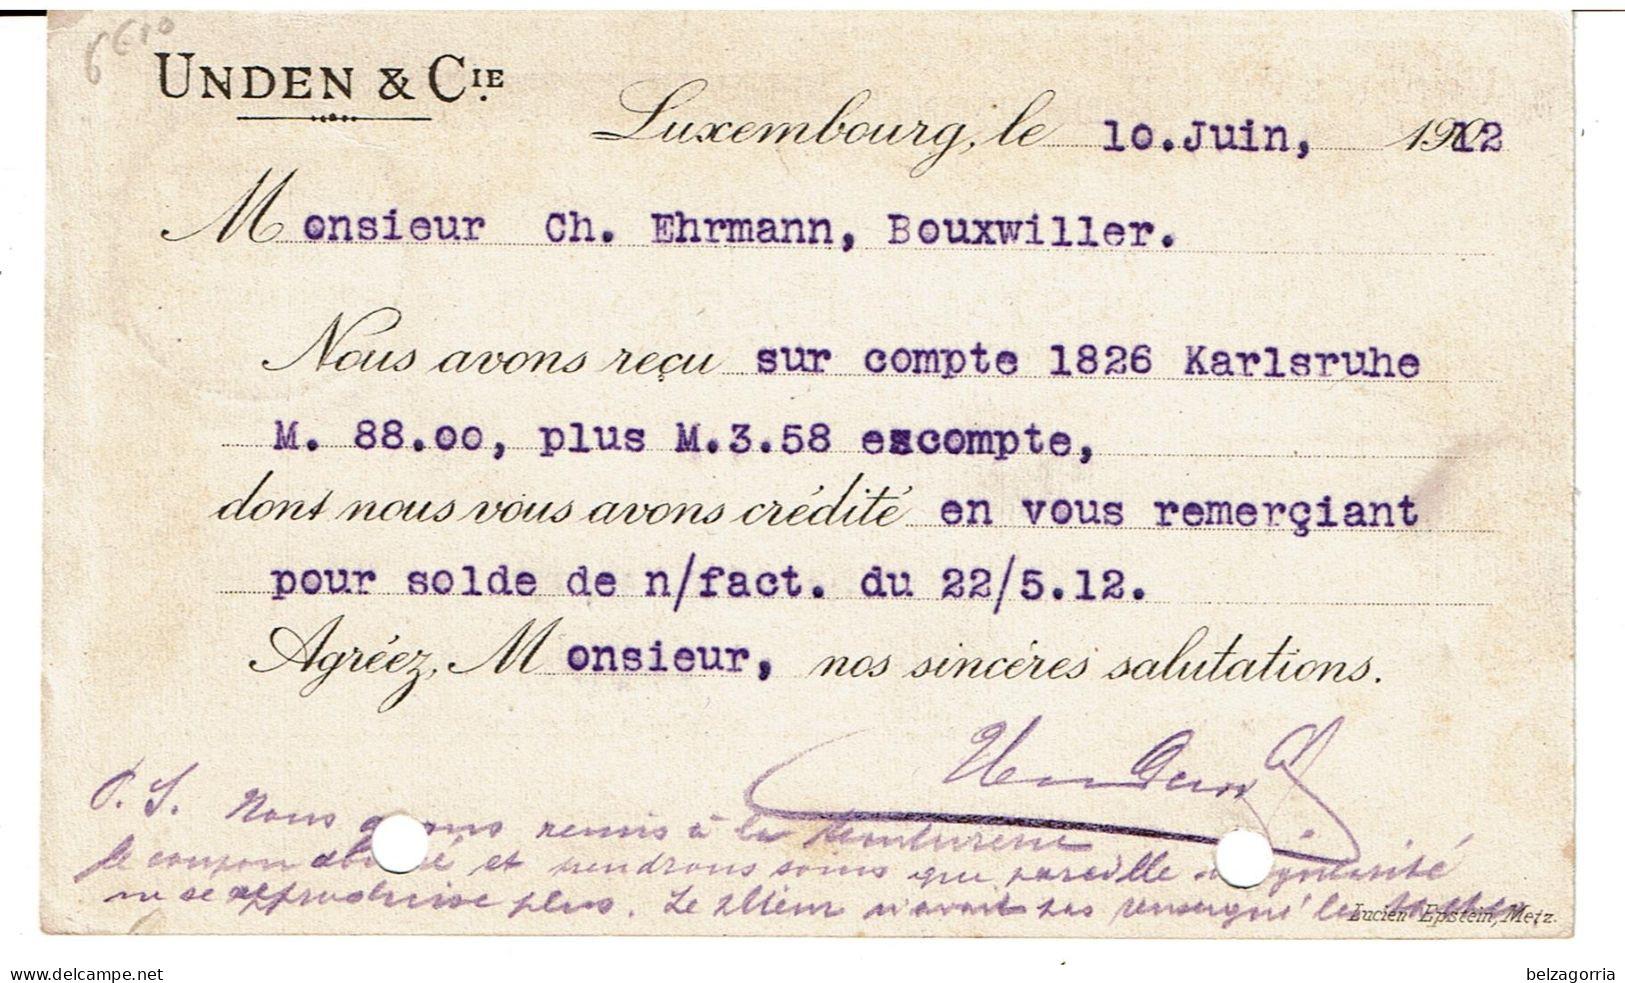 UNDEN & CIE.
Luxembourg, le 10.Juin, 1912
Monsieur Ch. Ehrmann, Bouxwiller.
Nous avons reçu sur compte 1826 Karlsruhe
M. 88.00, plus M.3.58 escompte,
dont nous vous avons crédité en vous remerçiant
pour solde de n/fact. du 22/5.12.
Agréez, Monsieur, nos sincères salutations.
P.S. Nous avons remis à la
le coupon et prendrons soins que pareille
ne se plus. Le n'avait pas renseigné
Lucien Epstein, Metz.
delcampe.net
belzagorria